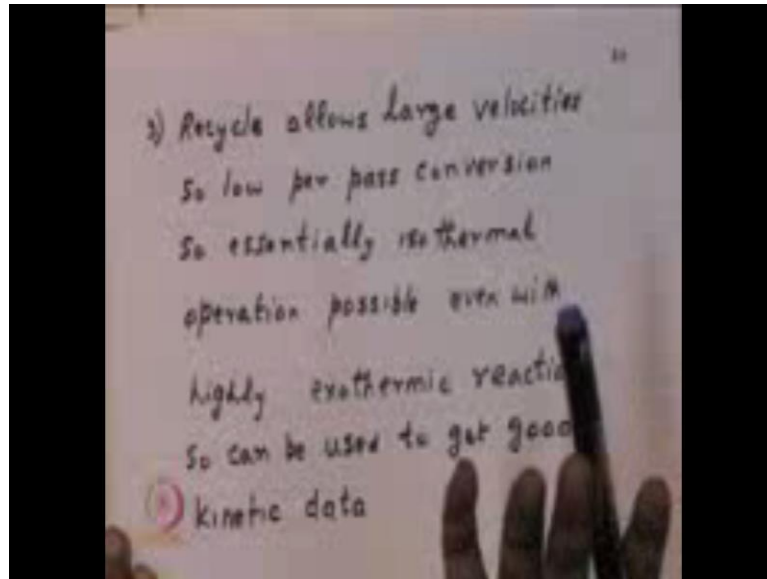 3) Recycle allows large velocities
So low per pass conversion
So essentially isothermal
operation possible even with
highly exothermic reactio
So can be used to get good
kinetic data